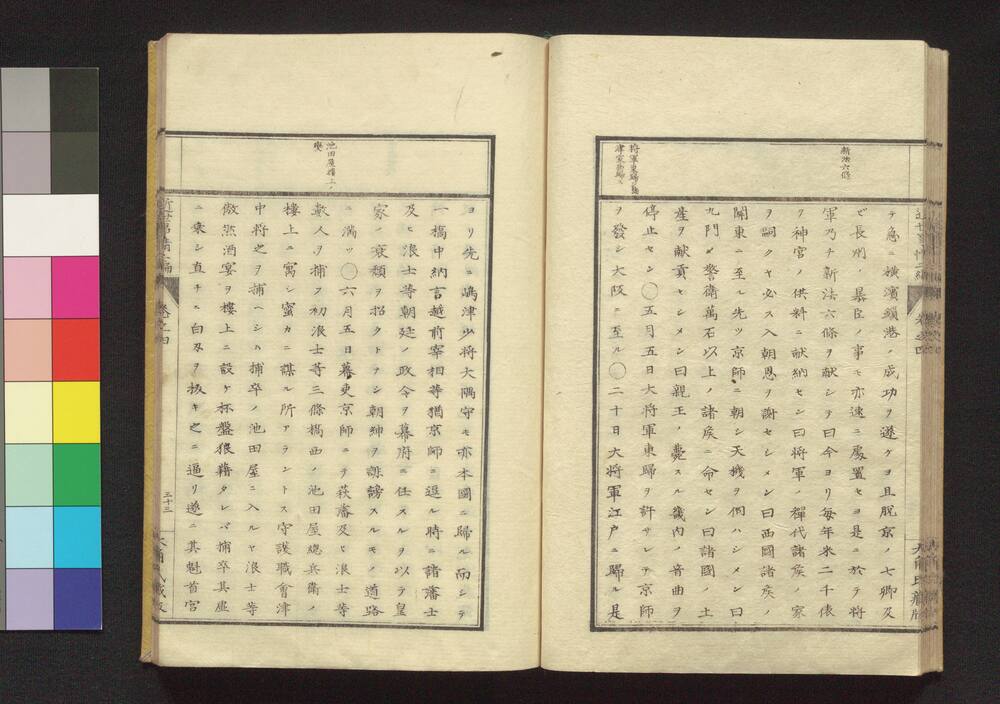 新法六條
将軍東歸
テ急ニ横濱鎖港ノ成功ヲ遂ケヨ且脱京ノ七卿及
ビ長州ノ暴臣ノ事モ亦速ニ處置セヨ是ニ於テ将
軍乃チ新法六條ヲ献シテ曰今ヨリ毎年米二千俵
ヲ神宮ノ供料ニ献納セン曰将軍ノ襌代諸矦ノ家
ヲ嗣クヤ必ス入朝恩ヲ謝セシメン曰西國諸矦ノ
関東ニ至ル先ツ京師ニ朝シ天機ヲ伺ハシメン曰
九門ノ警衛萬石以上ノ諸矦ニ命セン曰諸國ノ土
産ヲ献貢セシメン曰親王ノ薨スル畿内ノ音曲ヲ
停止セン○五月五日大将軍東歸ヲ許サレテ京師
ヲ發シ大阪ニ至ル○二十日大将軍江戸ニ歸ル是
池田屋樓上ノ
變
ヨリ先ニ嶋津少将大隅守モ亦本國ニ歸ル而シテ
一橋中納言越前宰相等猶京師ニ逗ル時ニ諸藩士
及ヒ浪士等朝廷ノ政令ヲ幕府ニ任スルヲ以テ皇
家ノ衰頽ヲ招クトナシ朝紳ヲ誹謗スルモノ道路
ニ満ツ○六月五日幕吏京師ニテ萩藩及ヒ浪士等
數人ヲ捕フ初浪士等三條橋西ノ池田屋總兵衛ノ
樓上ニ寓シ蜜カニ謀ル所アラントス守護職會津
中将之ヲ捕ヘシム捕卒ノ池田屋ニ入ルヤ浪士等
倣然酒宴ヲ樓上ニ設ケ杯盤狼藉タレバ捕卒其虚
ニ乘シ直チニ白刃ヲ抜キ之ニ逼リ遂ニ其魁首宮
三十三